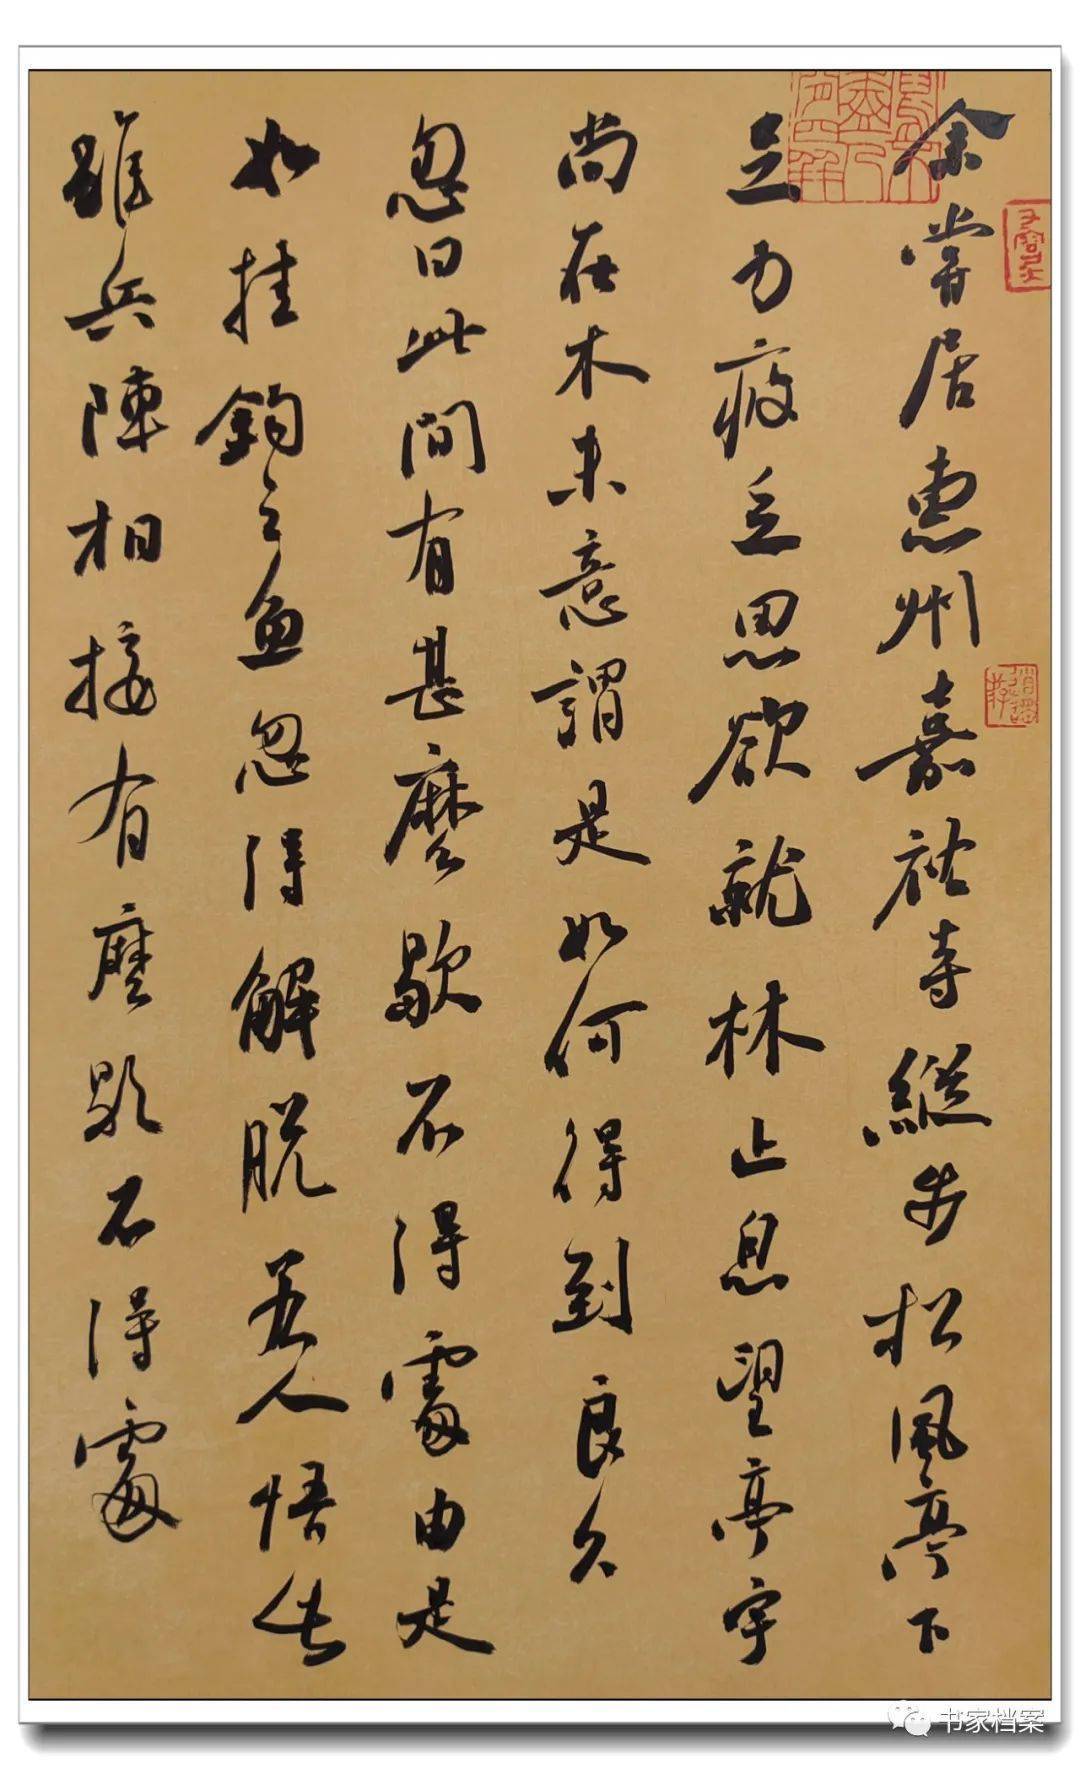 余嘗居惠州嘉祐寺縱步松風亭下
足力疲乏思欲就林止息望亭宇
尚在木末意謂是如何得到良久
忽曰此間有甚麼歇不得處由是
如挂鉤之魚忽得解脫若人悟此
雖兵陣相接有麼歇不得處
书家档案